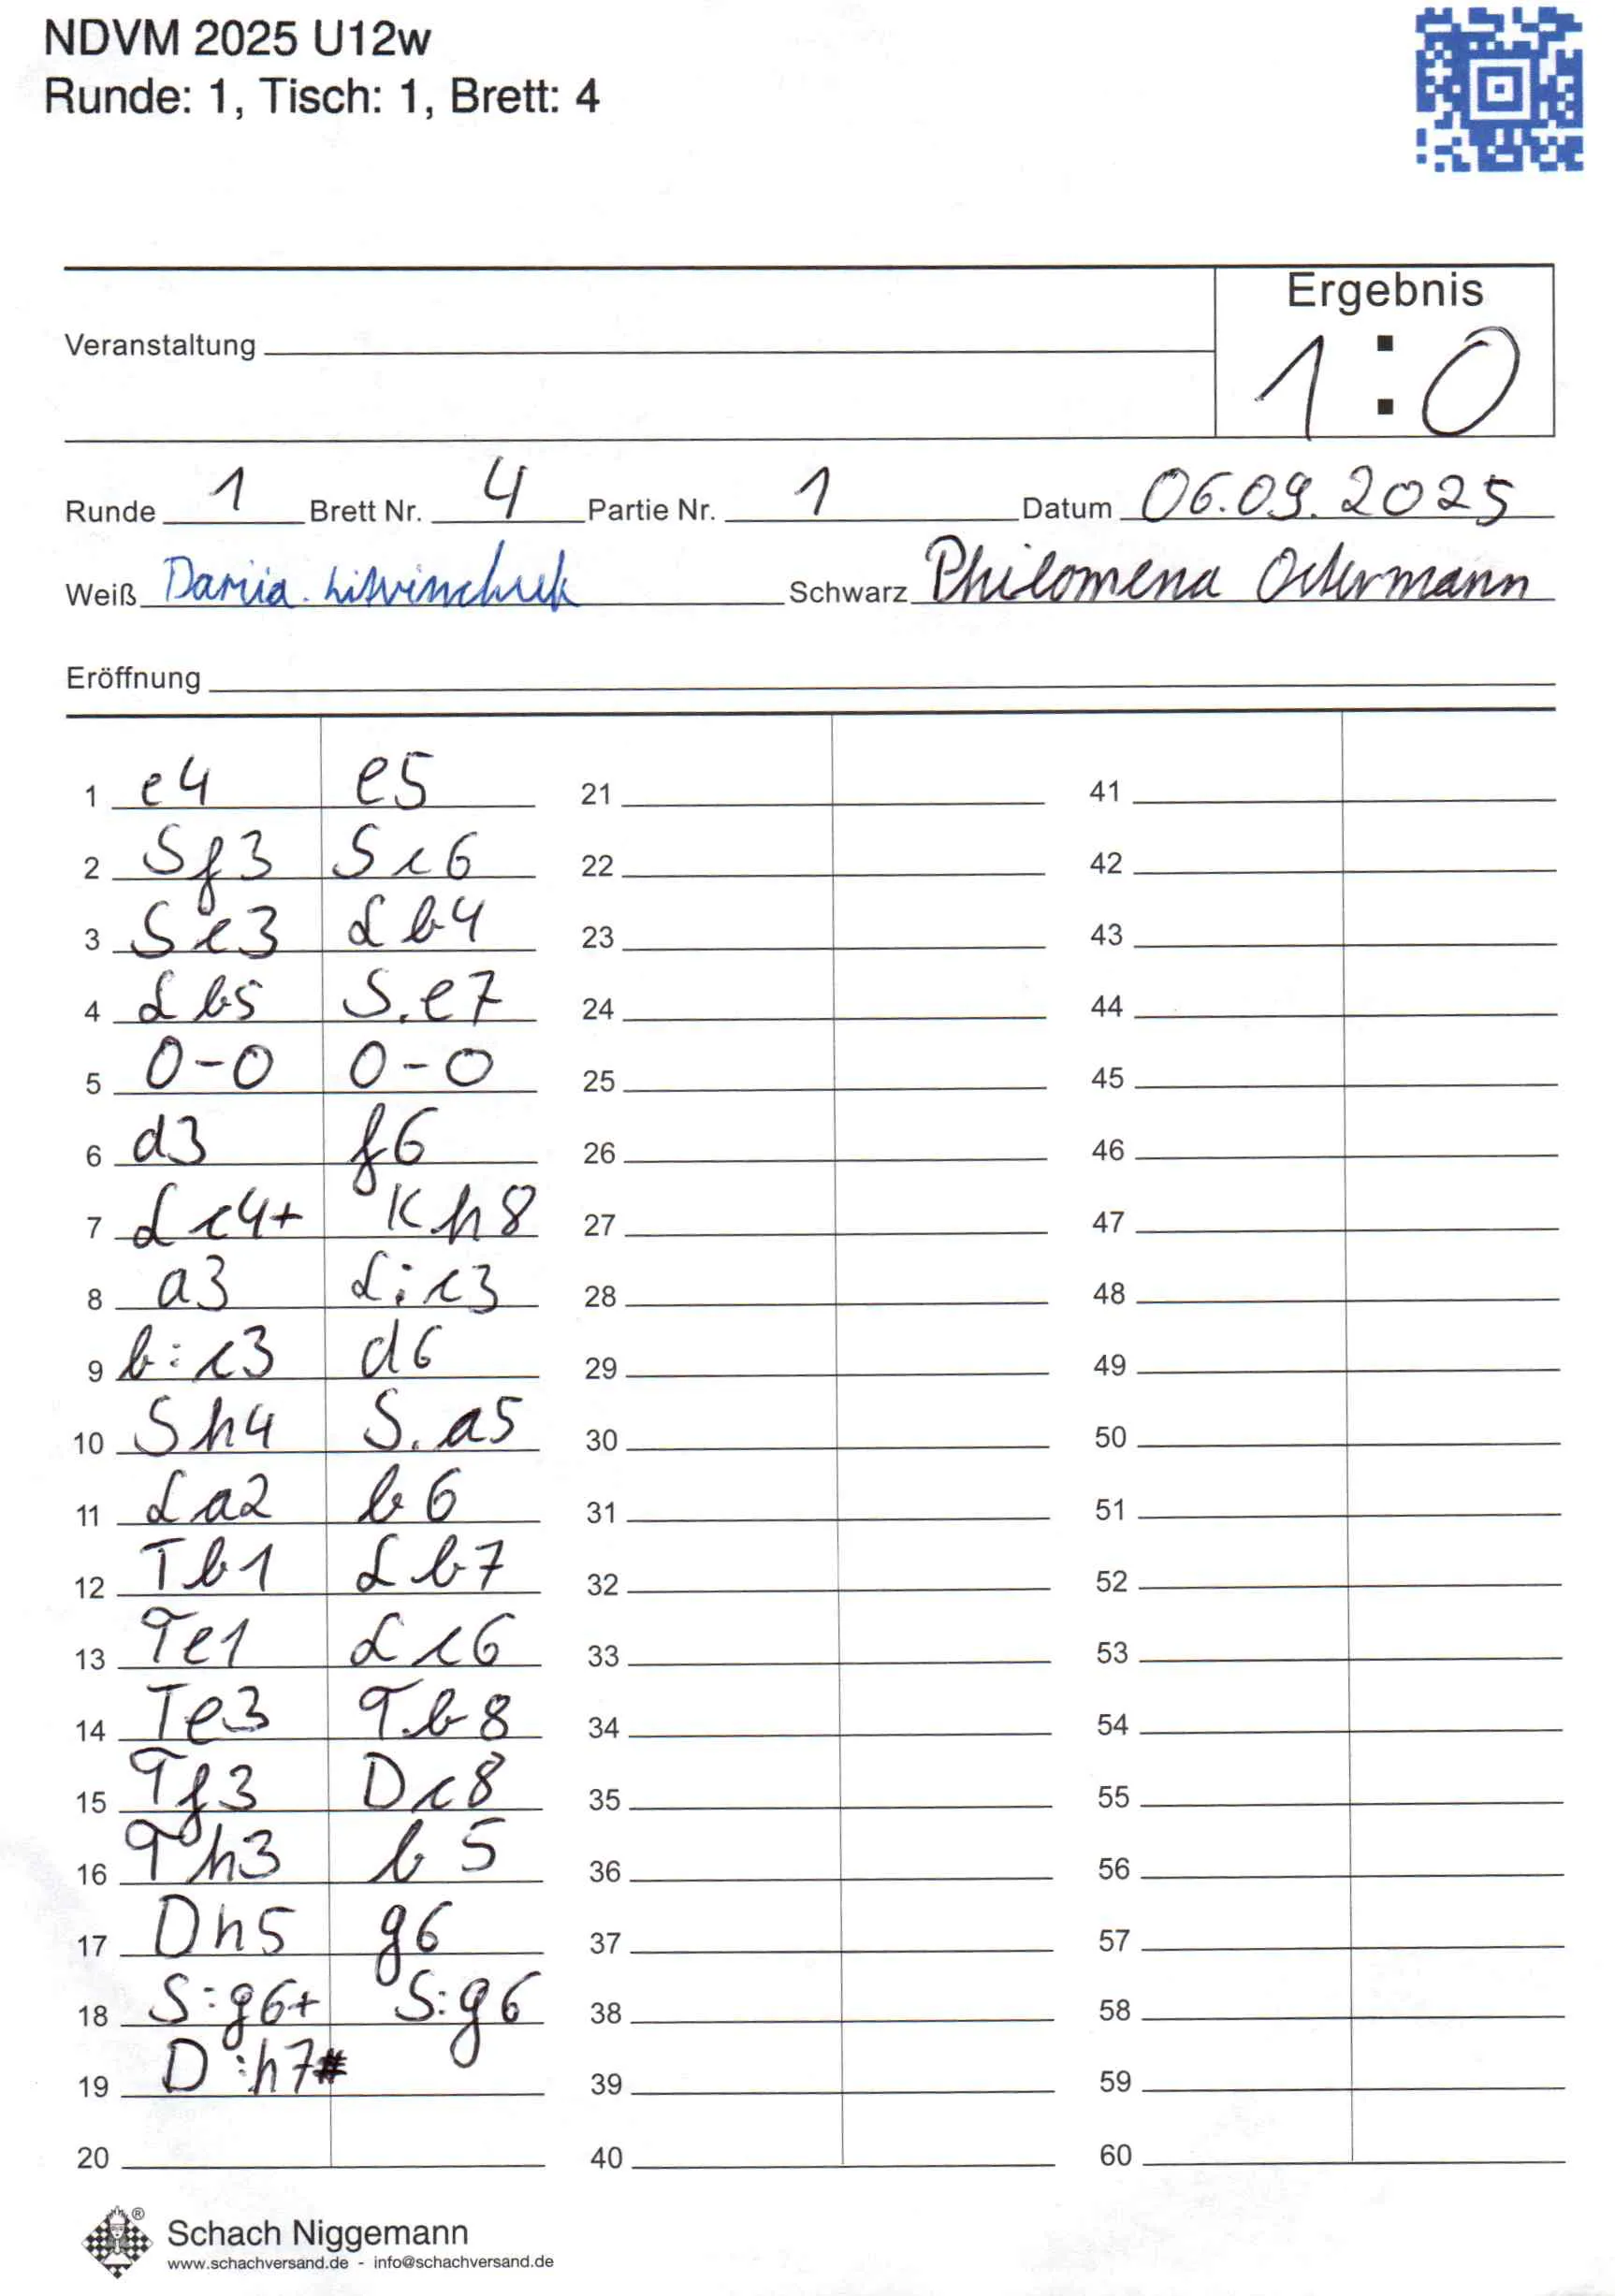 NDVM 2025 U12w
Runde: 1, Tisch: 1, Brett: 4
Ergebnis
Veranstaltung
1 : 0
Runde 1 Brett Nr. 4 Partie Nr. 1 Datum 06.09.2025
Weiß Dariia Schwarz Philomena
Eröffnung
1 e4 e5 21 41
2 Sf3 Sc6 22 42
3 Sc3 Lb4 23 43
4 Lb5 S.e7 24 44
5 0-0 0-0 25 45
6 d3 f6 26 46
7 Lc4+ Kh8 27 47
8 a3 L:c3 28 48
9 b:c3 d6 29 49
10 Sh4 S.a5 30 50
11 La2 b6 31 51
12 Tb1 Lb7 32 52
13 Te1 Lc6 33 53
14 Te3 T.b8 34 54
15 Tf3 Dc8 35 55
16 Th3 b5 36 56
17 Dh5 g6 37 57
18 S:g6+ S:g6 38 58
19 D:h7# 39 59
20 40 60
®
Schach Niggemann
www.schachversand.de - info@schachversand.de